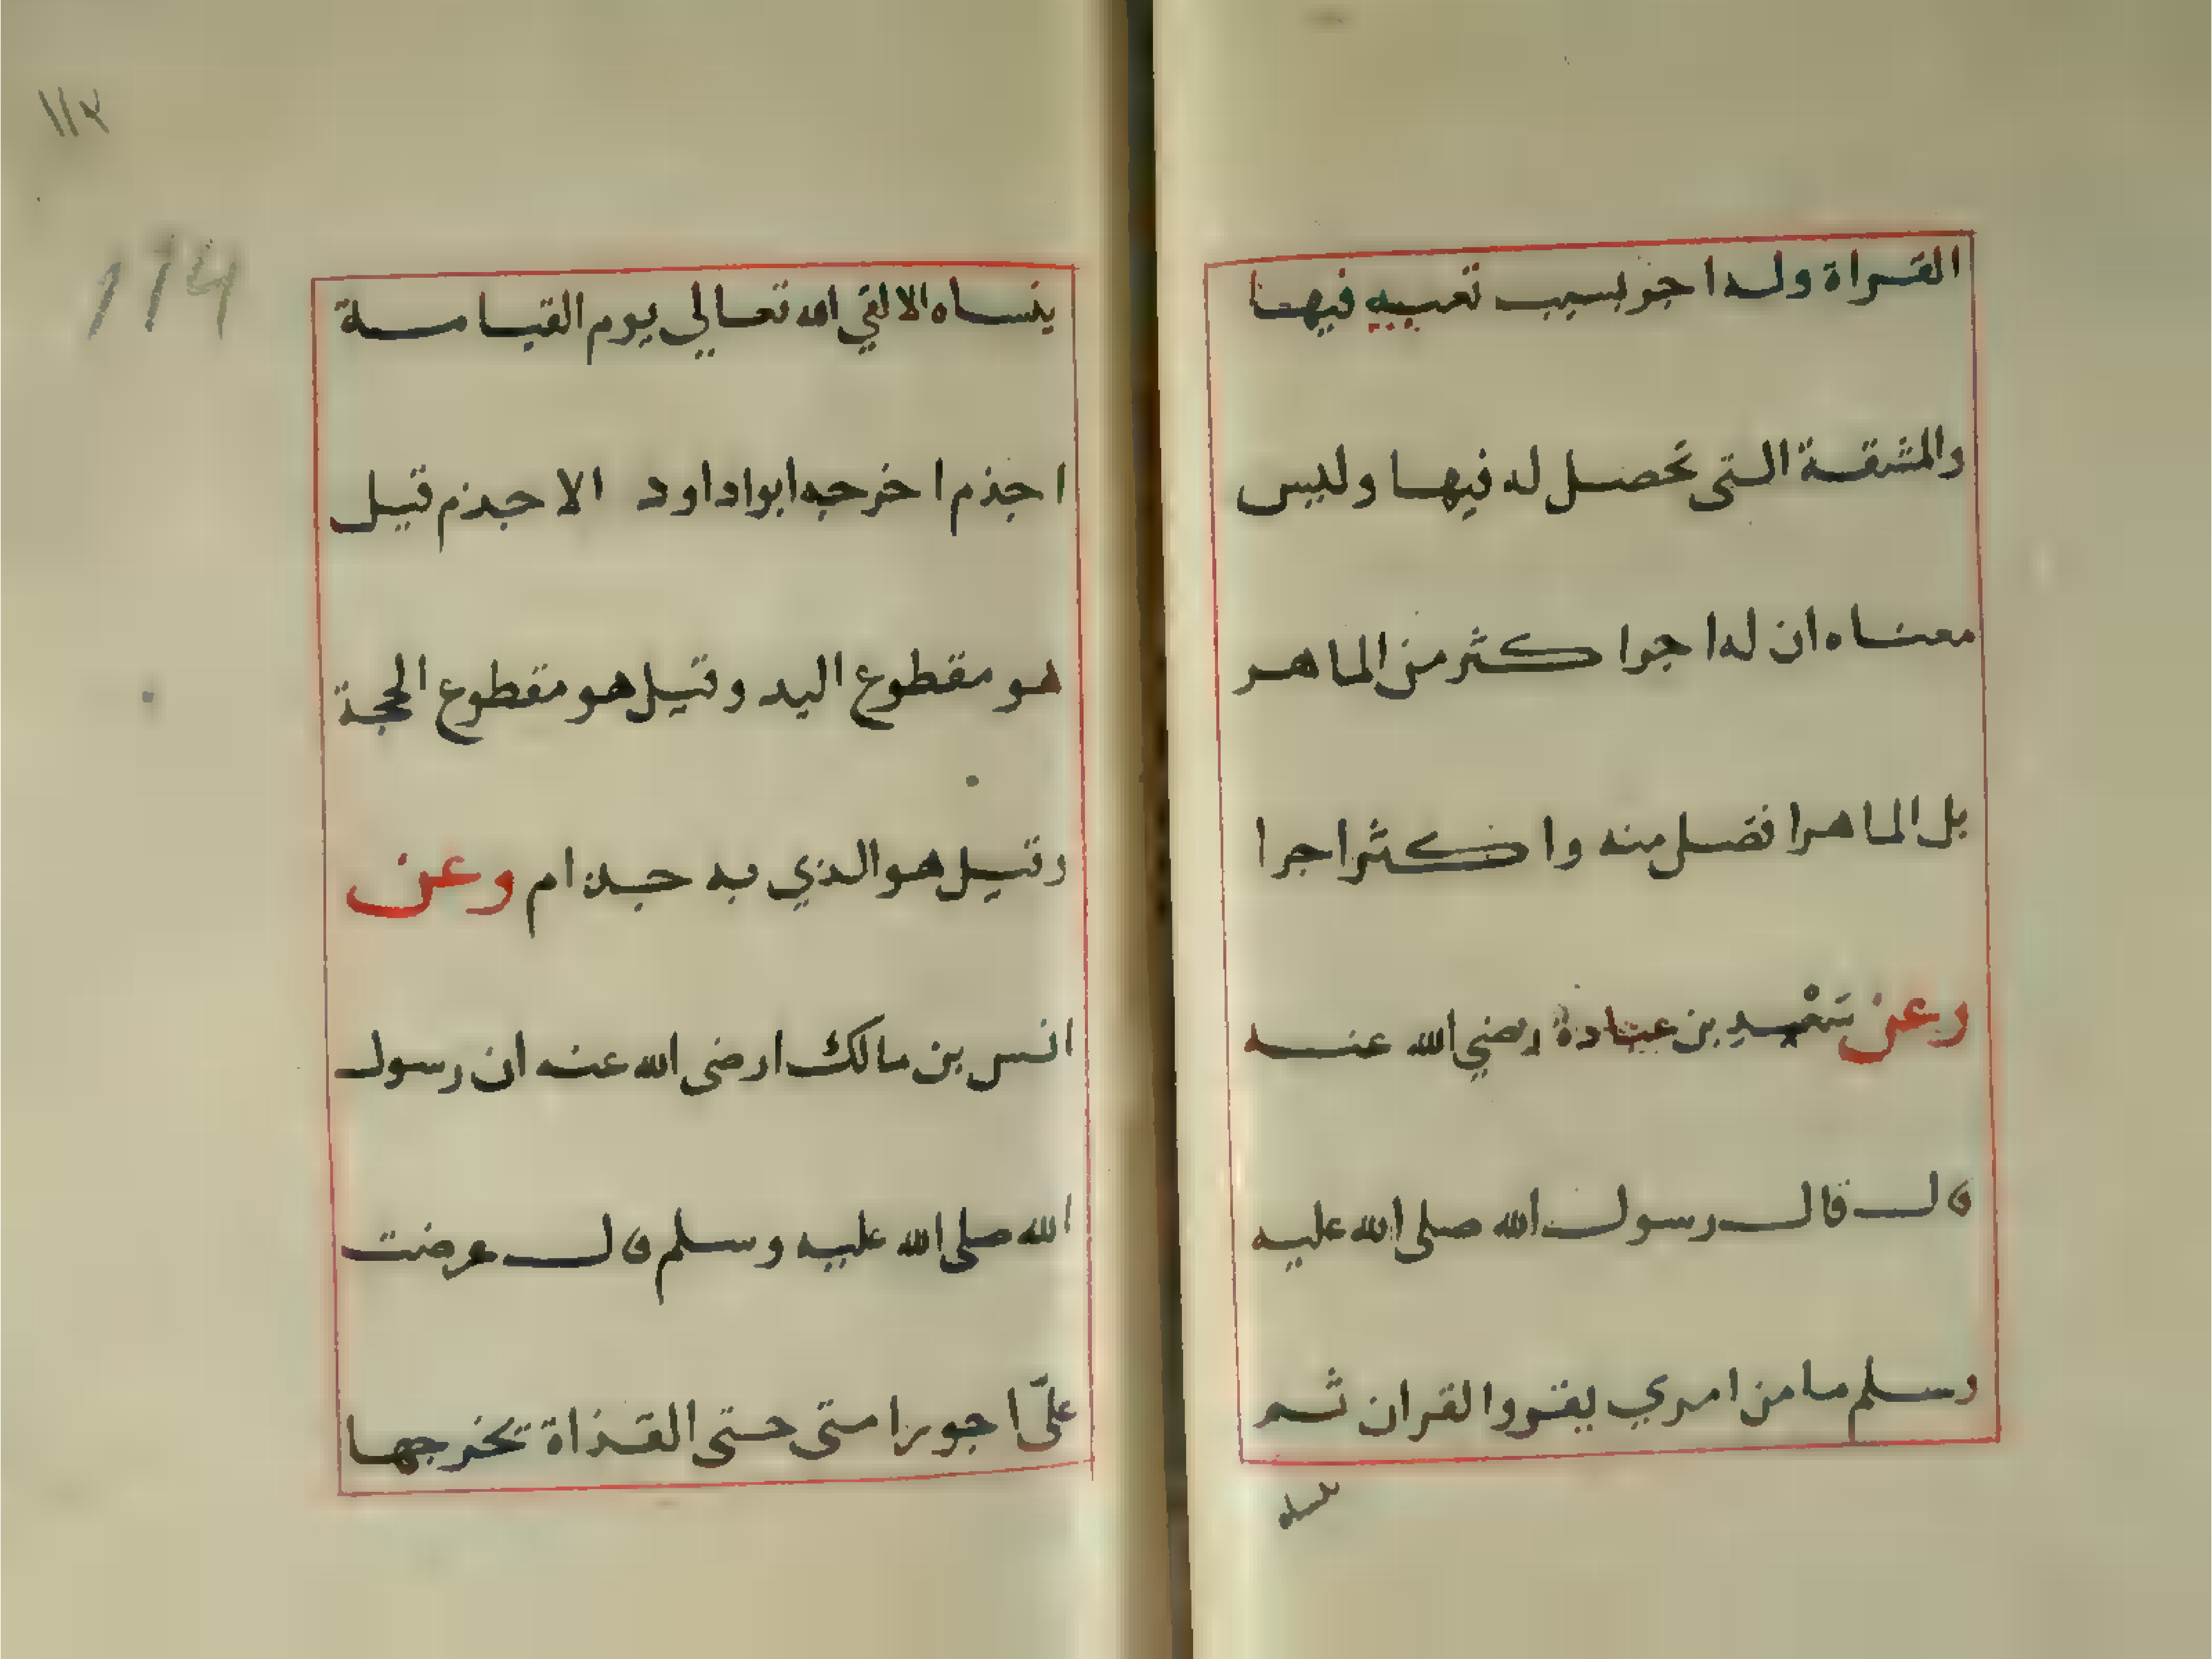 القراة وله اجر بسبب تعبيه فيها
والمشقة التى تحصل له فيها وليس
معناه ان له اجرا كثر من الماهر
بل الماهر افضل منه واكثر اجرا
وعن سَعْيد بن عبادة رضي الله عنه
قال قال رسول الله صلى الله عليه
وسلم ما من امري يقروا القران ثم
ينساه الا لقي الله تعالي يوم القيامة
اجذم اخرجه ابواداود الاجذم قيل
هو مقطوع اليد وقيل هو مقطوع الحجة
وقيل هو الذي به جذام وعن
انس بن مالك ارضى الله عنه ان رسول
الله صلى الله عليه وسلم قال عرضت
علىّ اجور امتى حتى القذاة تخرجها
١١٢
114